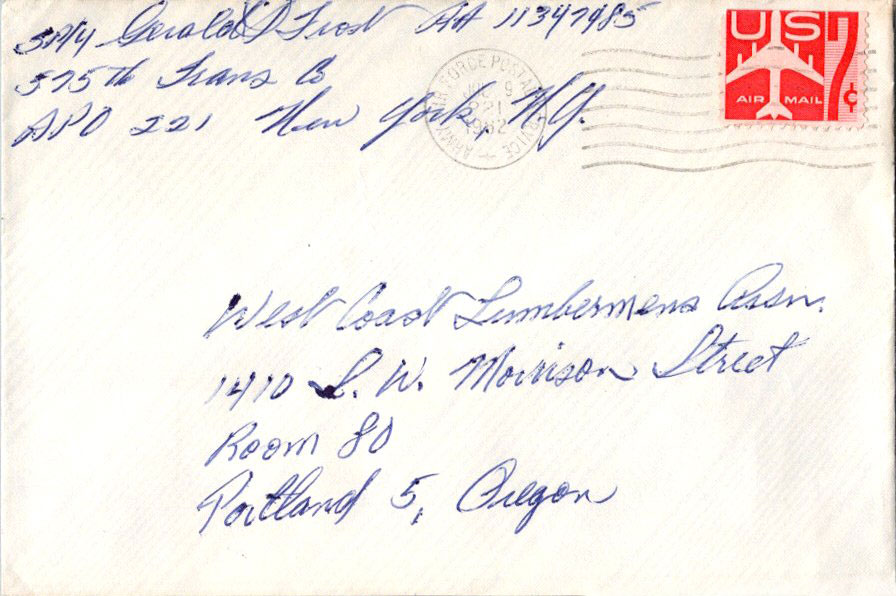 SP/4 Gerald D Frost AA 11347985
575th Trans Co
APO 221 New York, N.Y.
ARMY AIR FORCE POSTAL SERVICE
9
221
1962
US 7¢
AIR MAIL
West Coast Lumbermens Assn.
1410 S. W. Morrison Street
Room 80
Portland 5, Oregon